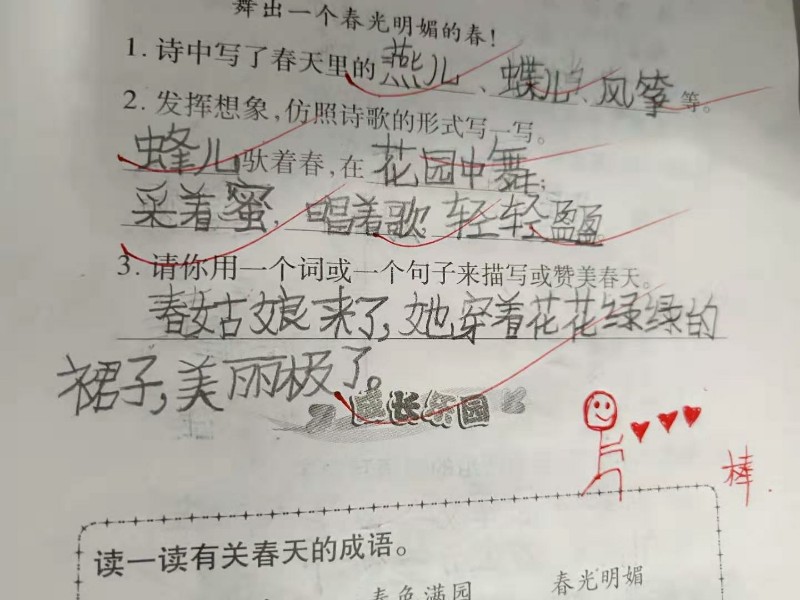 舞出一个春光明媚的春!
1. 诗中写了春天里的燕儿、蝶儿、风筝等。
2. 发挥想象,仿照诗歌的形式写一写。
蜂儿驮着春,在花园中舞;
采着蜜,唱着歌 轻轻盈盈。
3. 请你用一个词或一个句子来描写或赞美春天。
春姑娘来了,她穿着花花绿绿的
裙子,美丽极了。
成长乐园
棒.
读一读有关春天的成语。
春色满园 春光明媚